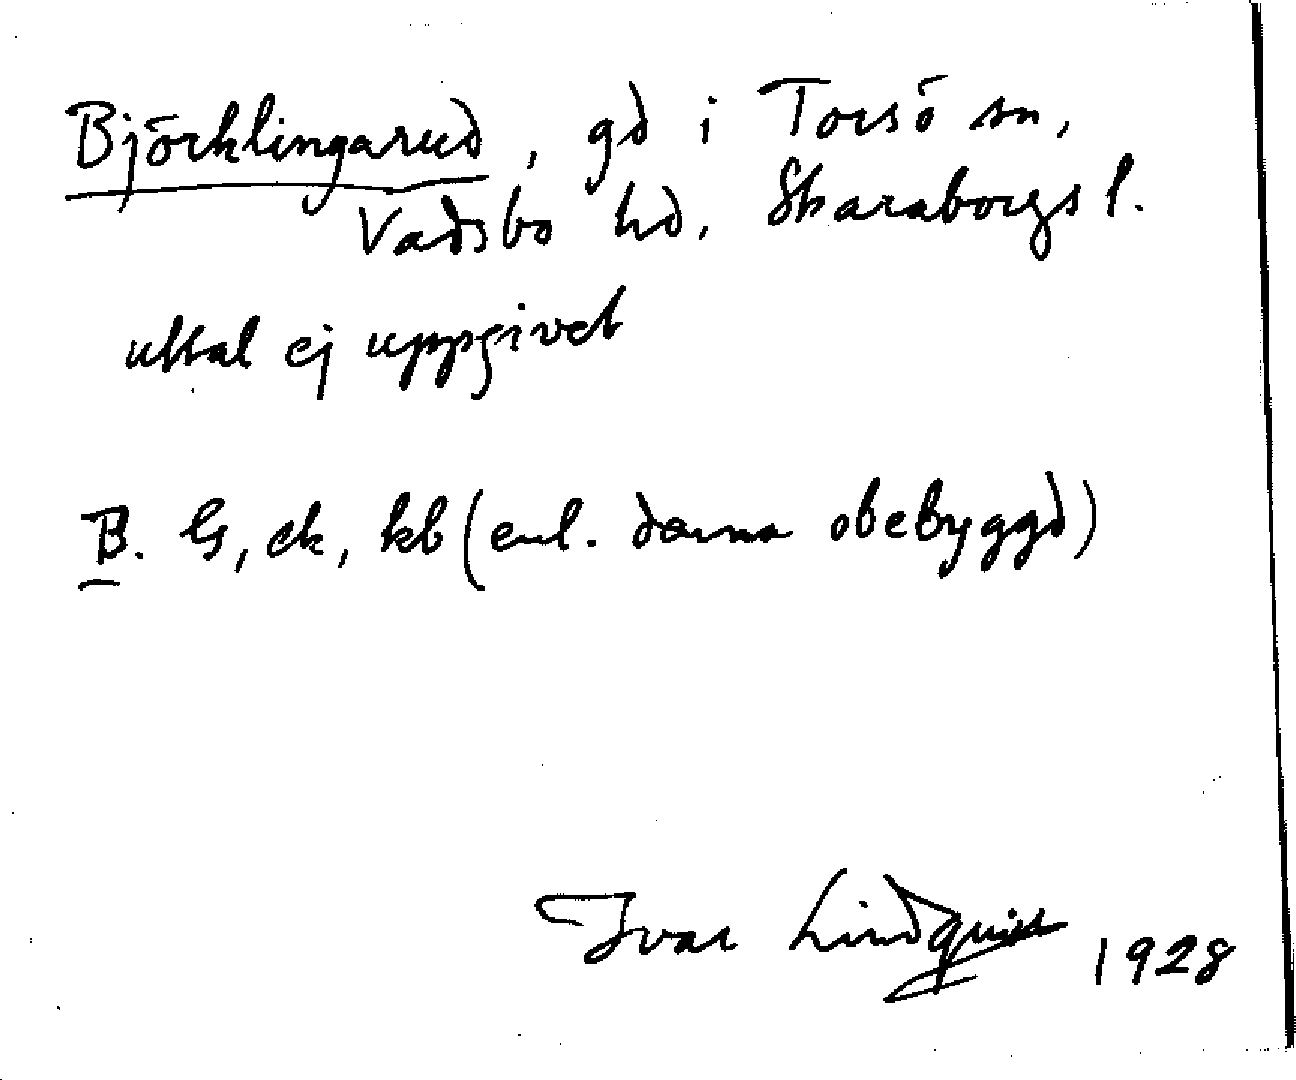 Björklingarud, gd i Torsö sn,
Vadsbo hd, Skaraborgs l.
uttal ej uppgivet
B. G, ek, kb (enl. denna obebyggd)
Ivar Lindquist 1928